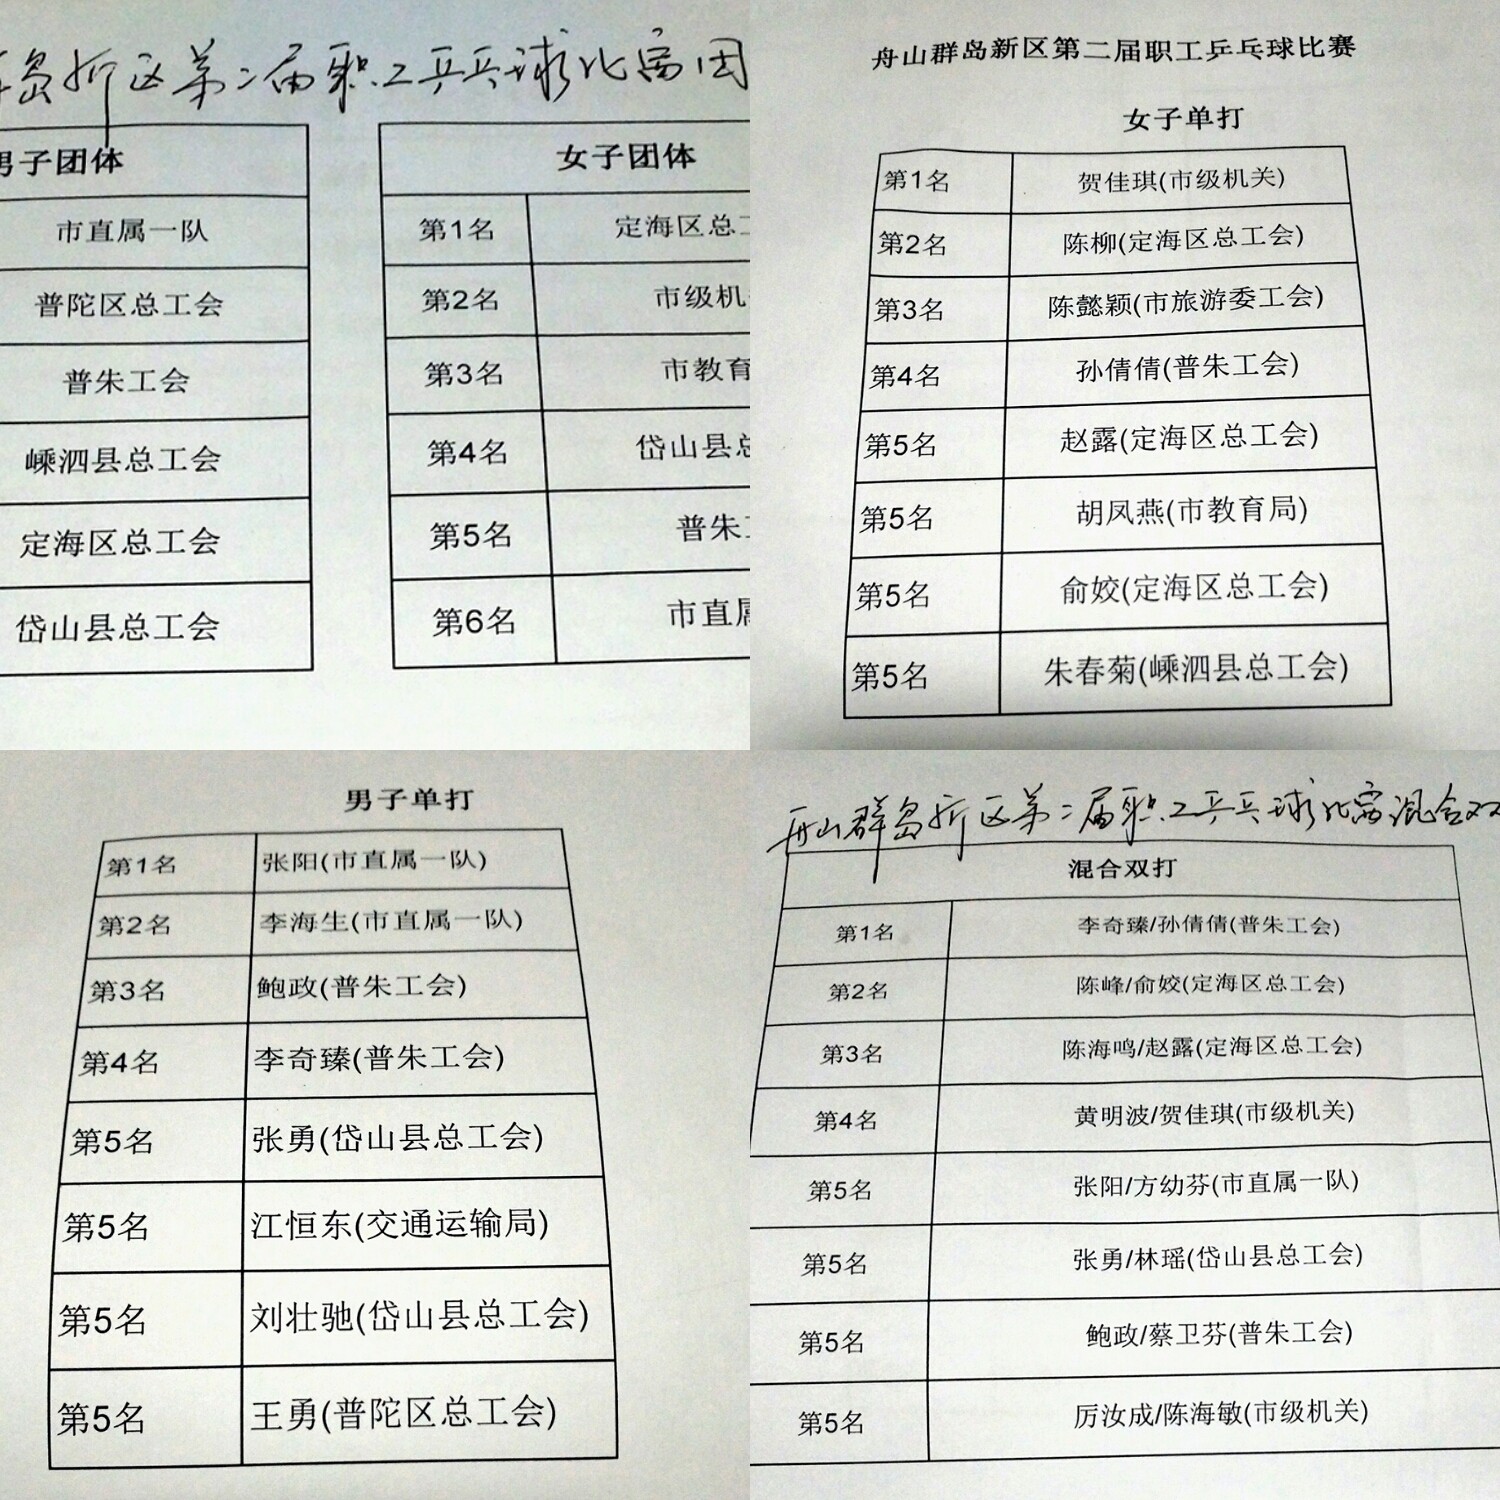 岛新区第二届职工乒乓球比赛团
男子团体
市直属一队
普陀区总工会
普朱工会
嵊泗县总工会
定海区总工会
岱山县总工会
女子团体
第1名 定海区总工
第2名 市级机
第3名 市教育
第4名 岱山县总
第5名 普朱工
第6名 市直属
舟山群岛新区第二届职工乒乓球比赛
女子单打
第1名 贺佳琪(市级机关)
第2名 陈柳(定海区总工会)
第3名 陈懿颖(市旅游委工会)
第4名 孙倩倩(普朱工会)
第5名 赵露(定海区总工会)
第5名 胡凤燕(市教育局)
第5名 俞姣(定海区总工会)
第5名 朱春菊(嵊泗县总工会)
男子单打
第1名 张阳(市直属一队)
第2名 李海生(市直属一队)
第3名 鲍政(普朱工会)
第4名 李奇臻(普朱工会)
第5名 张勇(岱山县总工会)
第5名 江恒东(交通运输局)
第5名 刘壮驰(岱山县总工会)
第5名 王勇(普陀区总工会)
舟山群岛新区第二届职工乒乓球比赛混合双
混合双打
第1名 李奇臻/孙倩倩(普朱工会)
第2名 陈峰/俞姣(定海区总工会)
第3名 陈海鸣/赵露(定海区总工会)
第4名 黄明波/贺佳琪(市级机关)
第5名 张阳/方幼芬(市直属一队)
第5名 张勇/林瑶(岱山县总工会)
第5名 鲍政/蔡卫芬(普朱工会)
第5名 厉汝成/陈海敏(市级机关)